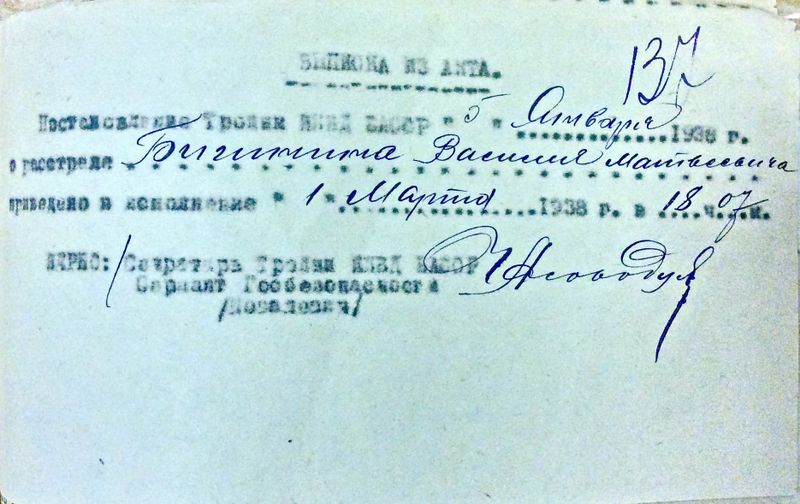 137
ВЫПИСКА ИЗ АКТА.
Постановление Тройки НКВД БАССР " 5 " Января 1938 г.
о расстреле Бигинина Василия Матвеевича
приведено в исполнение " 1 " Марта 1938 г. в 18 ч. 07 м.
ВЕРНО: Секретарь Тройки НКВД БАССР
Сержант Госбезопасности
/Ковалевич/